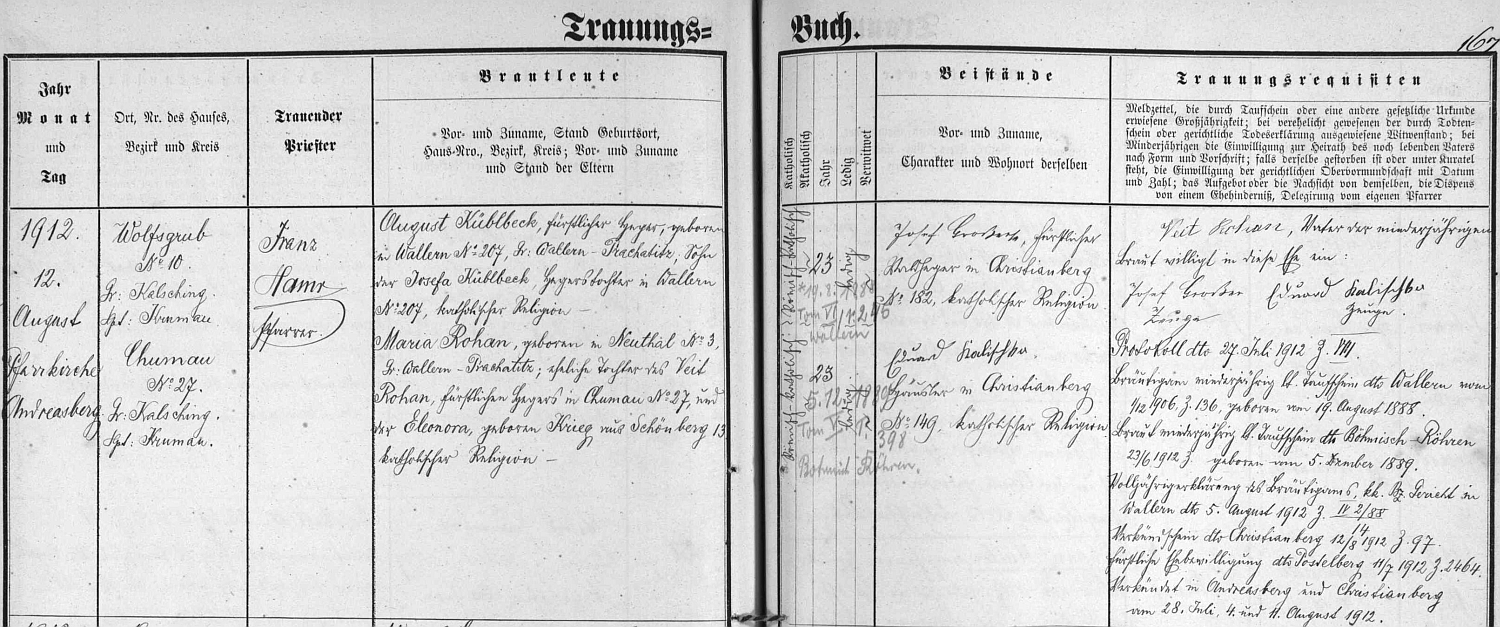 Trauungs=
Buch.
167
Jahr
Monat
und
Tag
Ort, Nr. des Hauses,
Bezirk und Kreis
Trauender
Priester
Brautleute
Vor- und Zuname, Stand Geburtsort,
Haus-Nro., Bezirk, Kreis; Vor- und Zuname
und Stand der Eltern
Katholisch
Akatholisch
Jahr
Ledig
Verwitwet
Beistände
Vor- und Zuname,
Charakter und Wohnort derselben
Trauungsrequisiten
Meldzettel, die durch Taufschein oder eine andere gesetzliche Urkunde
erwiesene Großjährigkeit; bei verehelicht gewesenen der durch Todten-
schein oder gerichtliche Todeserklärung ausgewiesene Witwenstand; bei
Minderjährigen die Einwilligung zur Heirath des noch lebenden Vaters
nach Form und Vorschrift; falls derselbe gestorben ist oder unter Kuratel
steht, die Einwilligung der gerichtlichen Obervormundschaft mit Datum
und Zahl; das Aufgebot oder die Nachsicht von demselben, die Dispens
von einem Ehehinderniß, Delegirung vom eigenen Pfarrer
1912.
12.
August
Pfarrkirche
Andreasberg
Wolfsgrub
No 10.
Gr: Kalsching.
Bpt: Kruman
Chumau
No 27.
Gr: Kalsching.
Bpt. Kruman.
Franz
Hamr
Pfarrer
August Küblbeck, fürstlicher Heger, geboren
in Wallern No 207, Gr: Wallern-Prachatitz; Sohn
der Josefa Küblbeck, Hegerstochter in Wallern
No 207, katholischer Religion –
Maria Rohan, geboren in Neuthal No 3,
Gr: Wallern-Prachatitz; eheliche Tochter des Veit
Rohan, fürstlichen Hegers in Chumau No 27 und
der Eleonora, geboren Krieg aus Schönberg 13
katholischer Religion –
Römisch-katholisch
23
ledig
Tom VI
Wallern
Römisch-katholisch
23
ledig
5.12.1889
Tom VI
398
Böhmisch Röhren.
Josef Großer, fürstlicher
Waldheger in Christianberg
No 182, katholischer Religion.
Eduard Kalischko.
Häusler in Christianberg
No 149, katholischer Religion
Veit Rohan, Vater der minderjährigen
Braut willigt in diese Ehe ein:
Josef Großer
Zeuge
Eduard Kalischko
Zeuge.
Protokoll dto 27. Juli 1912 Z. VIII.
Bräutigam minderjährig lt. Taufschein dto Wallern vom
1/12 1906, Z. 136, geboren am 19. August 1888.
Braut minderjährig lt. Taufschein dto Böhmisch-Röhren
23/6 1912 Z. geboren am 5. Dezember 1889.
Volljährigerklärung des Bräutigams, kk. Bz. Gericht in
Wallern dto 5. August 1912 Z. IV 2/88
14
Verkündschein dto Christianberg 12/8 1912 Z 97.
Fürstliche Ehebewilligung dto Postelberg 11/7 1912 Z. 2464.
Verkündet in Andreasberg und Christianberg
am 28. Juli, 4. und 11. August 1912.